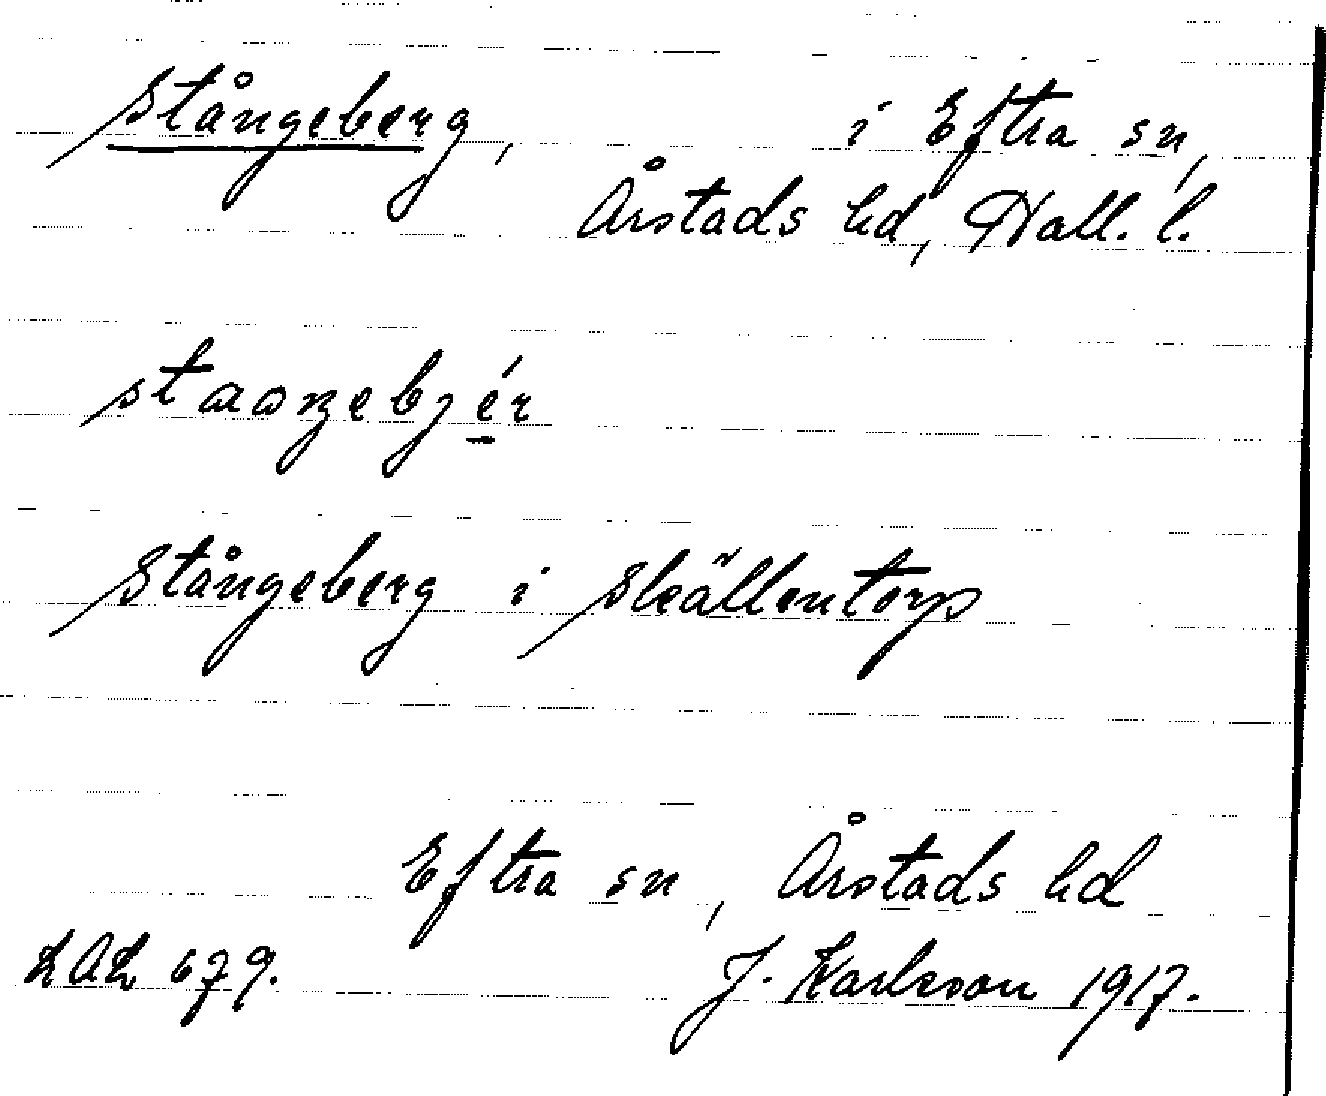 Stångeberg, i Eftra sn,
Årstads hd, Hall. l.
Stångeberg i Skällentorp
Eftra sn, Årstads hd
LAL 679. J. Karlsson 1917.